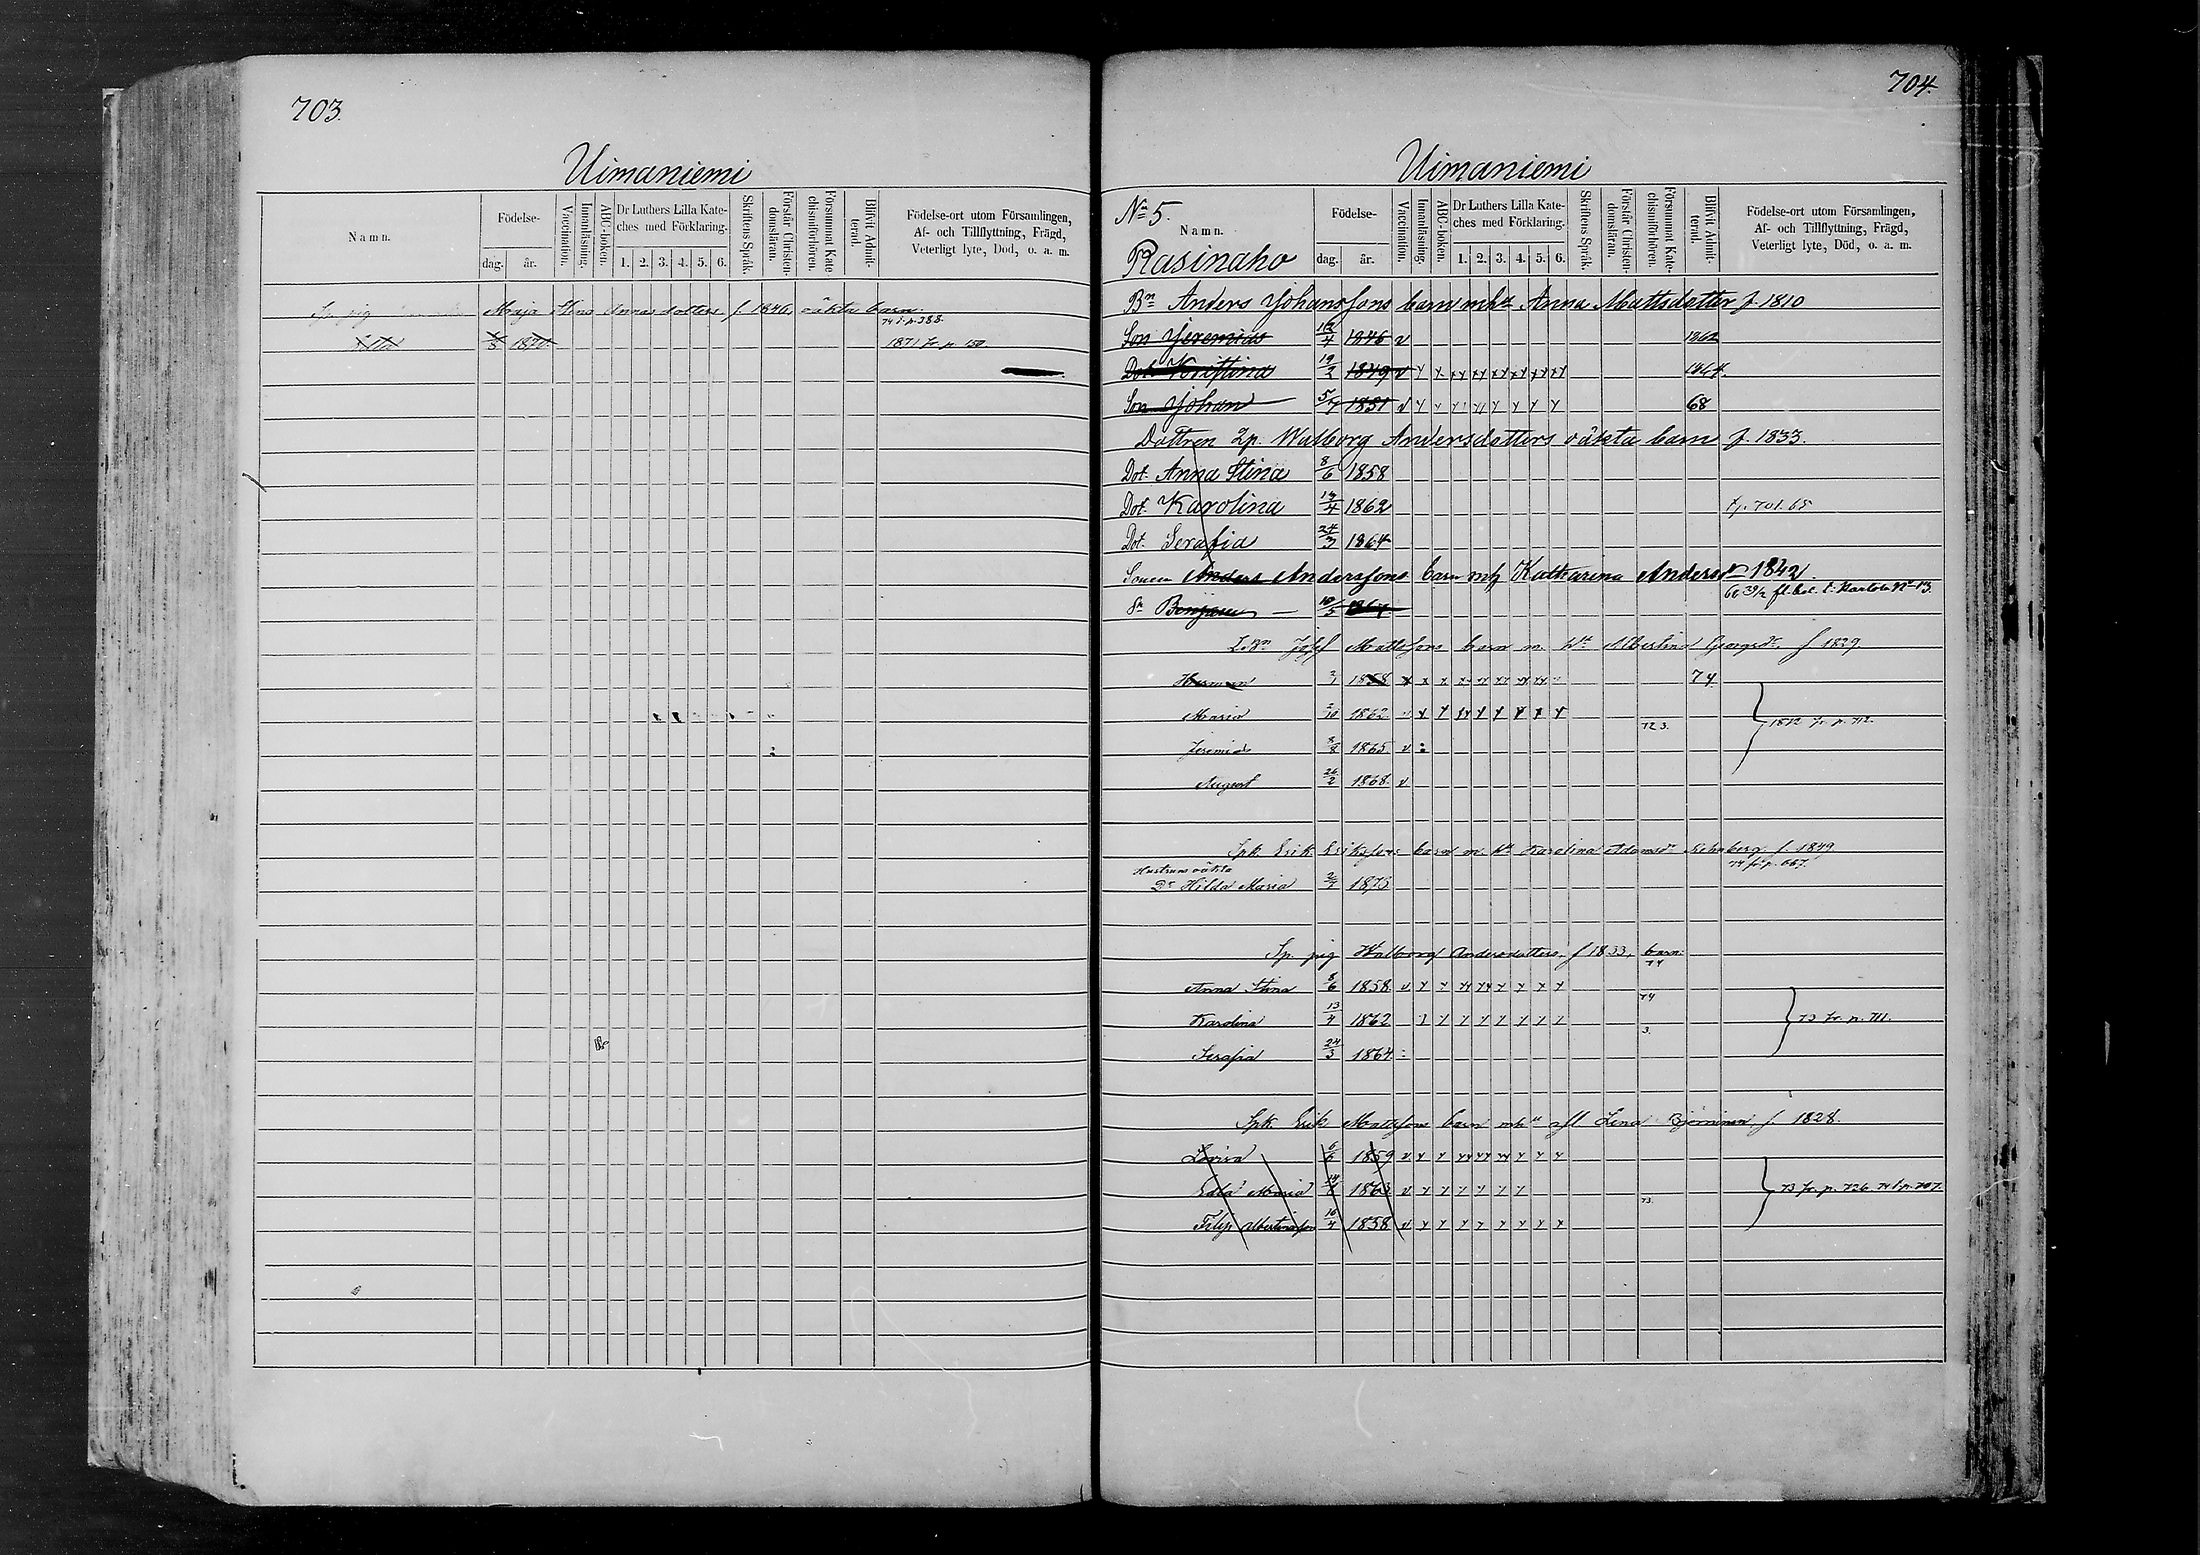 703.
Uimaniemi
Namn.
Födelse-
dag.
år.
Vaccination.
Innanläsning.
ABC-boken.
Dr Luthers Lilla Kate-
ches med Förklaring.
1. 2. 3. 4. 5. 6.
Skriftens Språk.
Förstår Christen-
domsläran.
Försummat Kate
chismiförhören.
Blifvit Admit-
terad.
Födelse-ort utom Församlingen,
Af- och Tillflyttning, Frägd,
Veterligt lyte, Död, o. a. m.
Sp. pig Maja Stina Annasdotters f. 1846, oäkta barn.
74 t. p. 388.
1870. 1871 fr. p. 150.
704.
Uimaniemi
No 5.
Namn.
Rasinaho
Födelse-
dag.
år.
Vaccination.
Innanläsning.
ABC-boken.
Dr Luthers Lilla Kate-
ches med Förklaring.
1. 2. 3. 4. 5. 6.
Skriftens Språk.
Förstår Christen-
domsläran.
Försummat Kate-
chismiförhören.
Blifvit Admit-
terad.
Födelse-ort utom Församlingen,
Af- och Tillflyttning, Frägd,
Veterligt lyte, Död, o. a. m.
Bn Anders Johanssons barn mhu Anna Mattsdotter f. 1810
Son Jeremias 12/4 1846 v 1862
Dot. Kristina 19/2 1849 v 1864.
Son Johan 5/7 1851 v 68
Dottren Ip. Walborg Andersdotters oäkta barn f. 1833.
Dot. Anna Stina 8/6 1858
Dot. Karolina 13/4 1862 t. p. 701. 65
Dot. Serafia 24/3 1864
Sonen Anders Anderssons barn mh Katharina Anders 1842.
Sn Benjam 10/5
Josef Mattssons barn m. hu Albertina Georgsdr. f 1829.
Herman 1858 74
Maria 1862. 72 3. 1872 fr. p. 712.
Jeremias 8/8 1865. v
August 26/2 1868. v
Spk. Erik Erikssons barn m. hu Karolina Adamsdr f. 1849
74 fr. p. 667.
Hustruns oäkta
Dr Hilda Maria 1873
Sp. pig Walborg Andersdotters, f 1833, barn:
74
Anna Stina 8/6 1858. v 74
Karolina 13/4 1862 3. 73 fr. p. 711.
Serafia 24/3 1864
Spk. Erik Mattssons barn mhu afl Lena f. 1828.
Lovisa 1859 v
Edla Maria 1863 v 73. 73 fr. p. 726. 74 t. p. 707.
Filip Albertinasson 10/4 1858 v